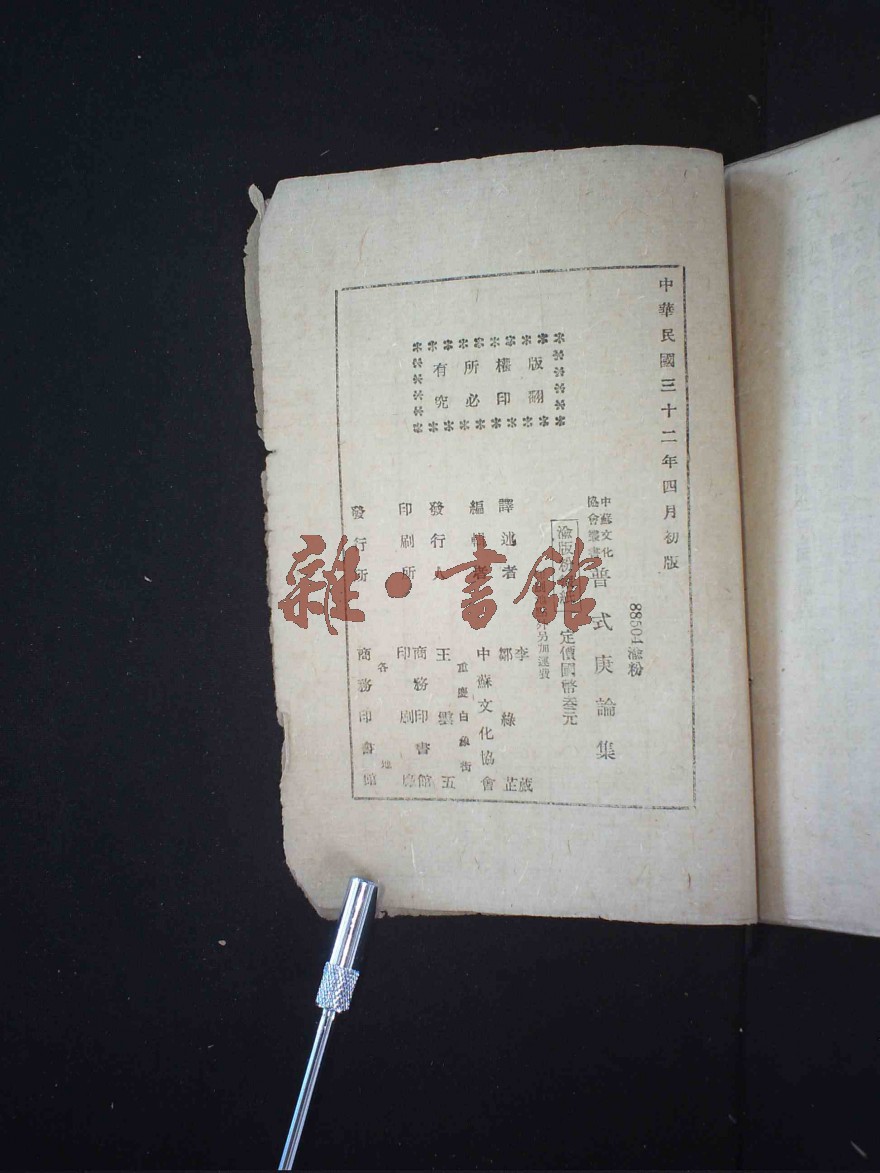 中華民國三十二年四月初版
版權所有
翻印必究
88504渝粉
中蘇文化
協會叢書
普式庚論集
渝版粉
定價國幣叁元
外另加運費
譯述者 李葳
鄒綠芷
編輯者 中蘇文化協會
重慶白象街
發行人 王雲五
印刷所 商務印書館
印刷廠
各地
發行所 商務印書館
雜·書館